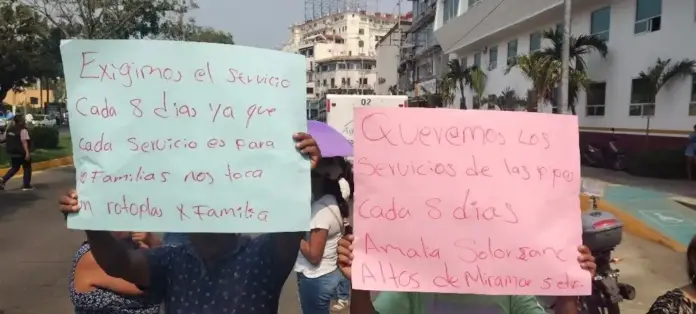 Exigimos el servicio
Cada 8 dias ya que
cada servicio es para
Familias nos toca
rotoplas x Familia
02
Queremos los
servicios de las pipas
cada 8 dias
Amalia Solorzano
Altos de Miramar